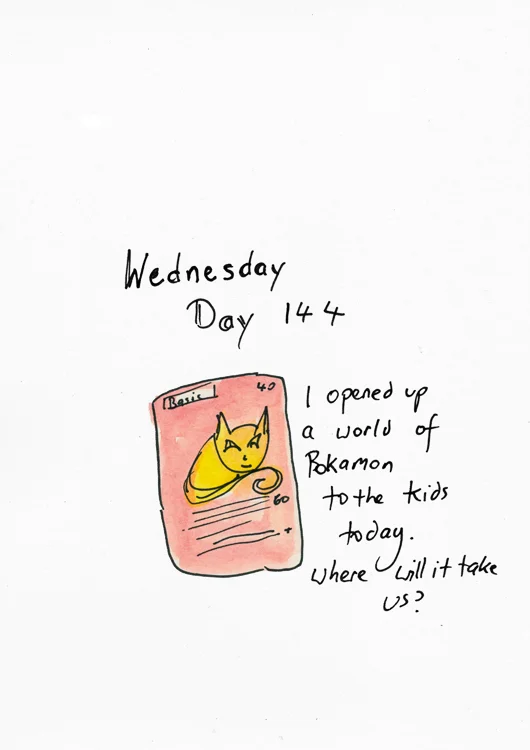 Wednesday
Day 144
Basic 40
60
+
I opened up
a world of
Pokamon
to the kids
today.
where will it take
us?